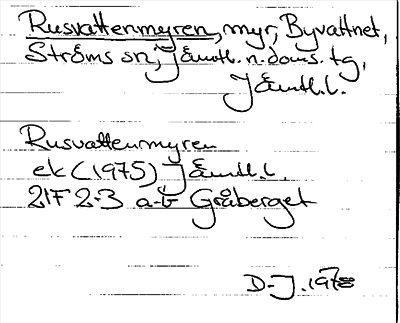 Rusvattenmyren, myr, Byvattnet,
Ströms sn, Jämtl. n. doms. tg,
Jämtl. l.
Rusvattenmyren
ek (1975) Jämtl. l.
21F 2-3 a-b Gråberget
D-J. 1978